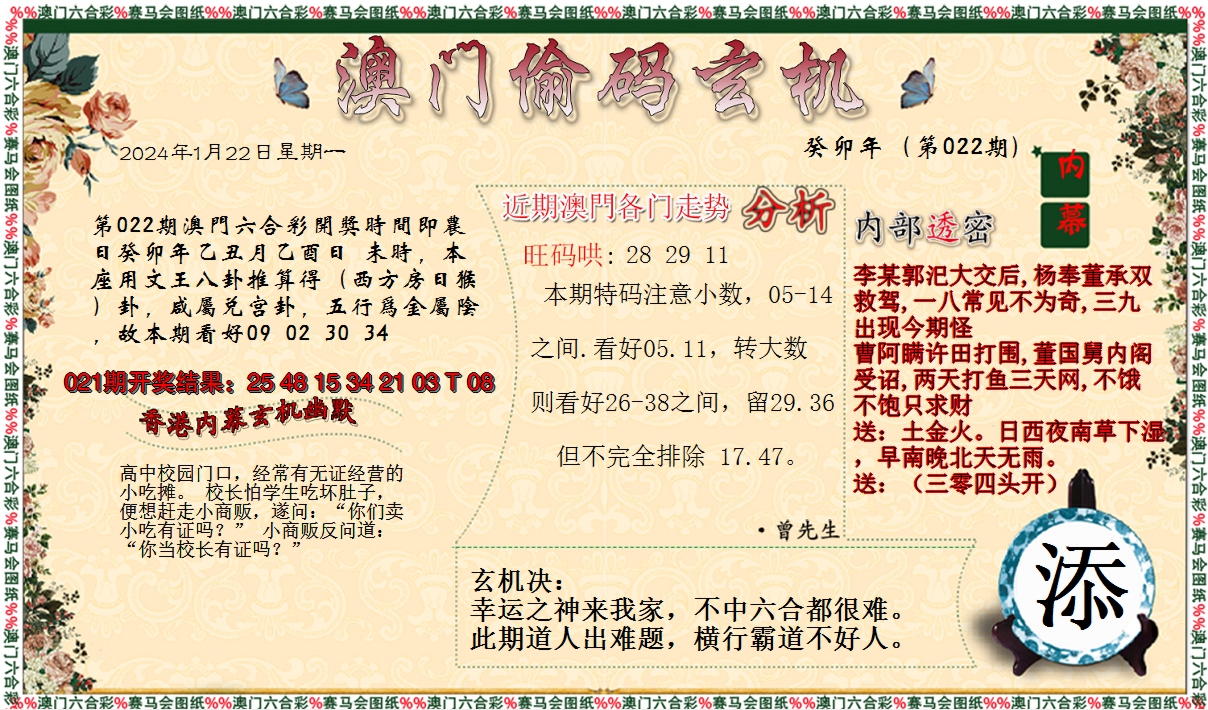 %%澳门六合彩%赛马会图纸%%澳门六合彩%赛马会图纸%%澳门六合彩%赛马会图纸%%澳门六合彩%赛马会图纸%%澳门六合彩%赛马会图纸%%澳门六合彩%赛马会图纸%%澳门六合彩%赛马会图纸%%
澳门偷码玄机
2024年1月22日星期一
癸卯年（第022期）
内幕
第022期澳門六合彩開獎時間即農
日癸卯年乙丑月乙酉日 未時，本
座用文王八卦推算得（西方房日猴
）卦，咸屬兑宫卦，五行爲金屬陰
，故本期看好09 02 30 34
021期开奖结果：25 48 15 34 21 03 T 08
香港内幕玄机幽默
高中校园门口，经常有无证经营的
小吃摊。 校长怕学生吃坏肚子，
便想赶走小商贩，遂问：“你们卖
小吃有证吗？” 小商贩反问道：
“你当校长有证吗？”
近期澳門各门走势 分析
旺码哄: 28 29 11
本期特码注意小数，05-14
之间.看好05.11，转大数
则看好26-38之间，留29.36
但不完全排除 17.47。
·曾先生
内部透密
李某郭汜大交后,杨奉董承双
救驾,一八常见不为奇,三九
出现今期怪
曹阿瞒许田打围,董国舅内阁
受诏,两天打鱼三天网,不饿
不饱只求财
送：土金火。日西夜南草下湿
，早南晚北天无雨。
送：（三零四头开）
玄机决：
幸运之神来我家，不中六合都很难。
此期道人出难题，横行霸道不好人。
添
%%澳门六合彩%赛马会图纸%%澳门六合彩%赛马会图纸%%澳门六合彩%赛马会图纸%%澳门六合彩%赛马会图纸%%澳门六合彩%赛马会图纸%%澳门六合彩%赛马会图纸%%澳门六合彩%赛马会图纸%%